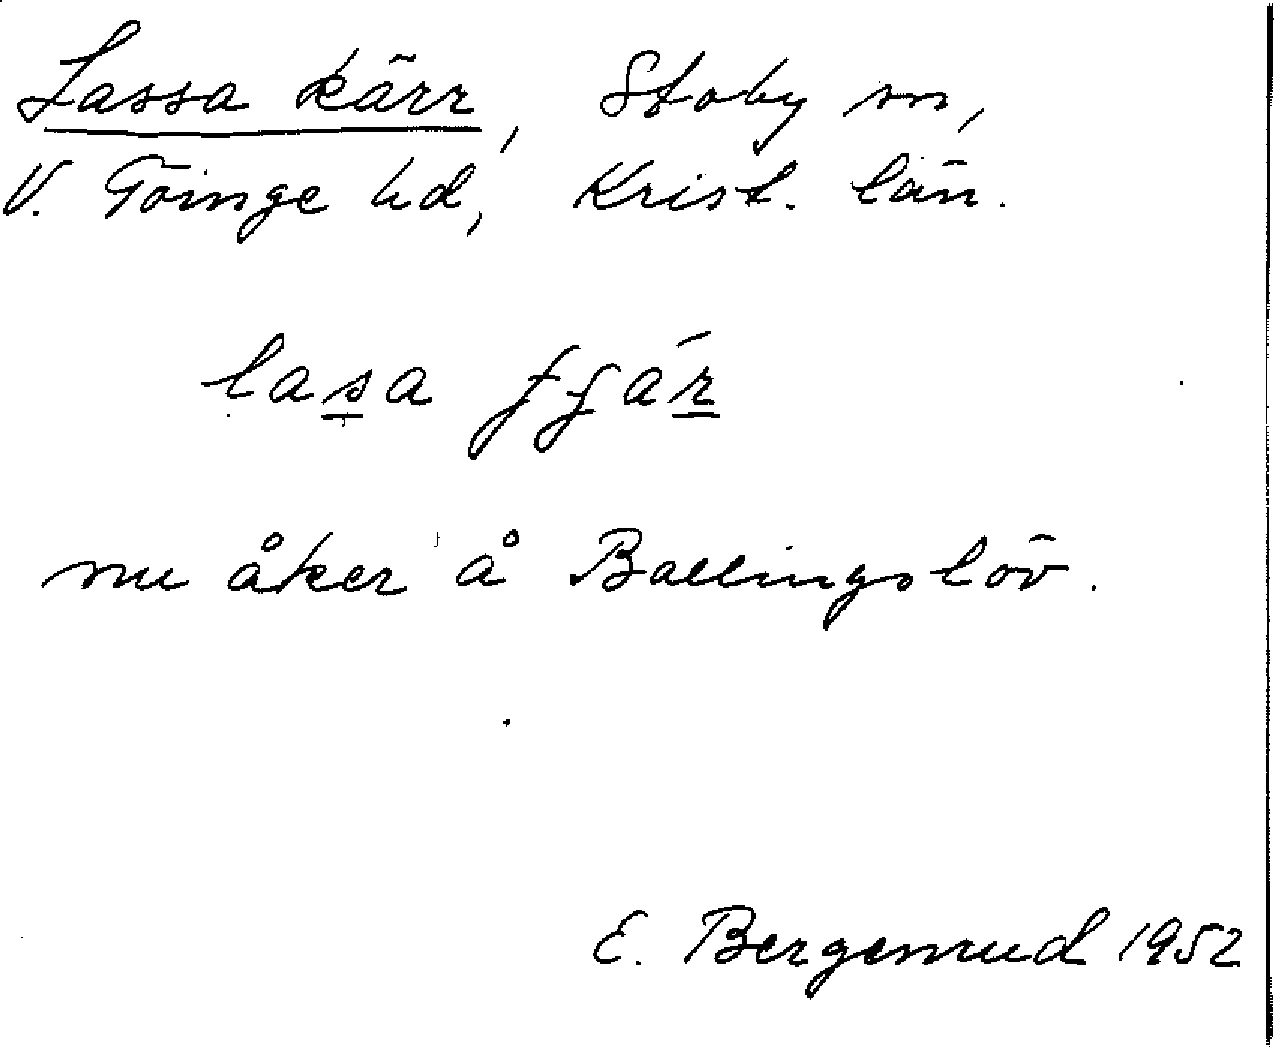 Lassa kärr, Stoby sn,
V. Göinge hd, Krist. län.
lasa ʄʄár
nu åker å Ballingslöv.
E. Bergenrud 1952